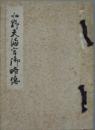 北野天満宮御略伝